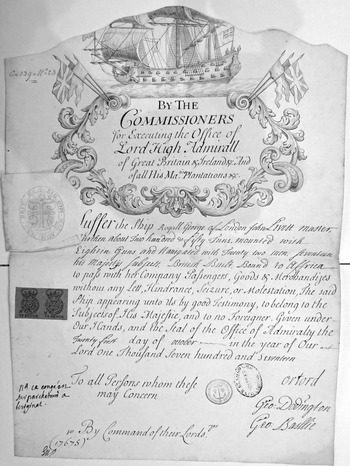 By The
Commissioners
for Executing the Office of
Lord High Admirall
of Great Britain & Ireland &c. And
of all His Ma.ts Plantations &c.
Suffer the Ship Royall George of London John Levett master,
Burthen about Two hundred & fifty Tuns, mounted with
Eighteen Guns and Navigated with Twenty two men,
his Majestys Subjects British Built Bound to Africa
to pass with her Company Passengers, Goods & Merchandizes
without any Lett, Hindrance, Seizure, or Molestation, The said
Ship appearing unto Us by good Testimony, to belong to the
Subjects of His Majestie, and to no Foreigner. Given under
Our Hands, and the Seal of the Office of Admiralty the
Twenty first day of in the year of Our
Lord One Thousand Seven hundred and Seventeen
To all Persons whom these
may Concern
Orford
Geo: Dodington
Geo: Baillie
l'original
By Command of their Lords.ps
(17675)